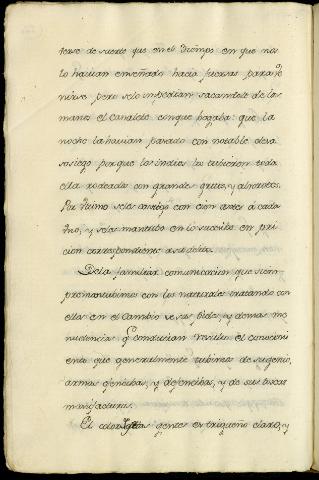 terse de suerte que en el tiempo en que nos
lo havian enseñado hacia fuerzas para
nirse pero selo impedian sacandole de las
manos el canalete con que bogaba: que la
noche la havian pasado con notable desa
sosiego porque los indios los tubieron toda
ella rodeada con grandes gritos, y alvorotos.
Por ultimo se les castigo con cien azotes á cada
uno, y se les mantubo en lo succesibo en pri
cion correspondiente a su delito.
De la familiar comunicacion que siem
pre mantubimos con los naturales tratando con
ellos en el cambio de sus pieles, y demas me
nudencias q conducian resulto el conocimi
ento que generalmente tubimos de su genio,
armas ofencibas, y defencibas, y de sus toscas
manifacturas.
El color de estas gentes es trigueño claro, y